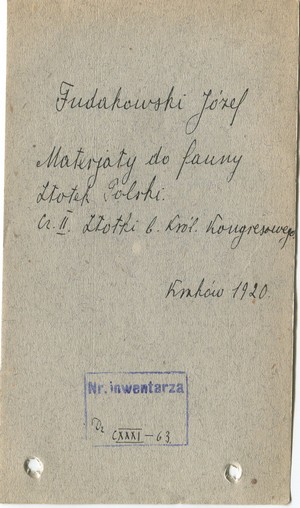 Fudakowski Józef
Materjały do fauny
Ważek Polski.
Cz. II. Ważki b. Król. Kongresowego
Kraków 1920.
Nr. inwentarza
Dr CXXXI-63